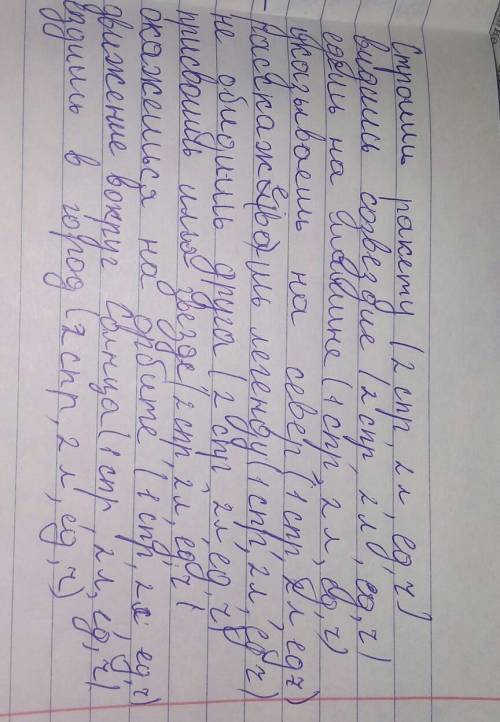 Строишь ракету (2 спр, 2 л, ед, ч)
видишь созвездие (2 спр, 2 л, ед, ч)
едешь на (1 спр, 2 л, ед, ч)
указываешь на север (1 спр 2 л ед ч)
расскажешь легенду (1 спр, 2 л, ед ч)
не обидишь друга (2 спр, 2 л, ед, ч)
присвоишь имя звезде (2 спр, 2 л, ед, ч)
окажешься на орбите (1 спр, 2 л ед, ч)
движение вокруг Солнца (1 спр 2 л, ед, ч)
ездишь в город (2 спр, 2 л, ед, ч)